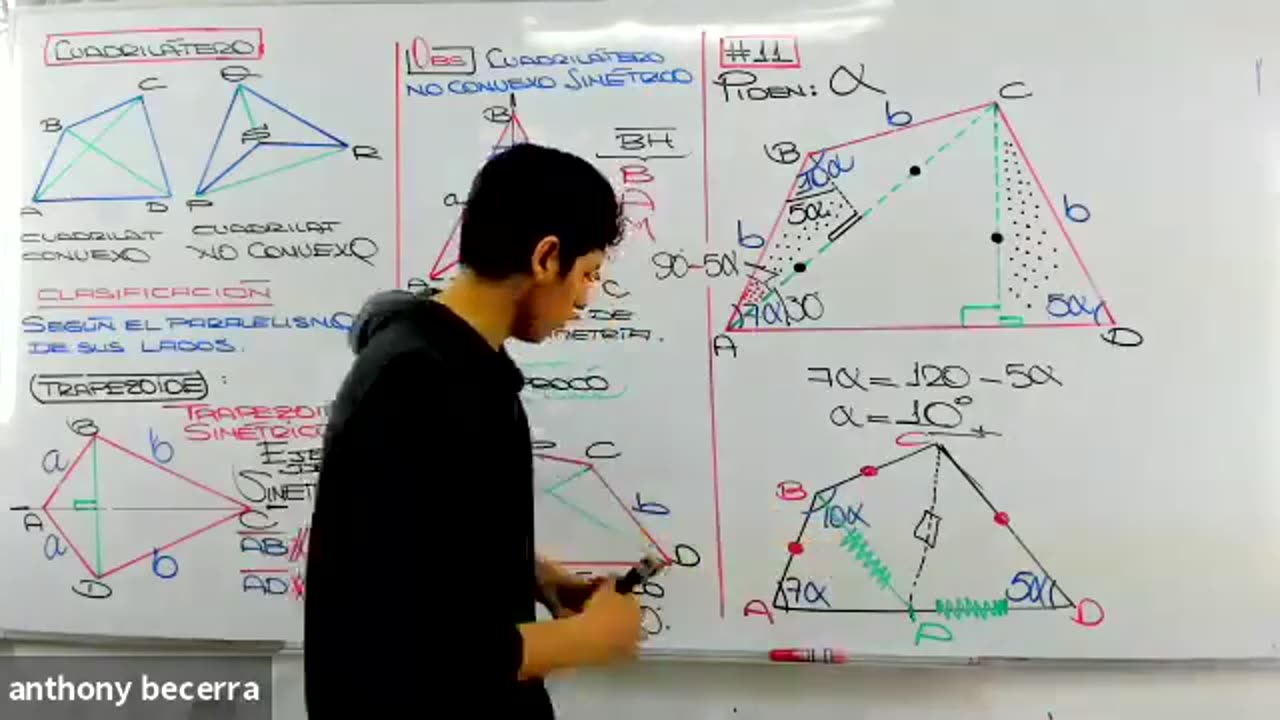 CUADRILÁTERO
C
B
A
D
Q
S
R
P
CUADRILAT
CONVEXO
CUADRILAT
NO CONVEXO
CLASIFICACIÓN
SEGÚN EL PARALELISMO
DE SUS LADOS.
TRAPEZOIDE :
TRAPEZOI
SIMÉTRICO
B
a
b
A
C
a
b
D
AB
AD
OBS CUADRILÁTERO
NO CONVEXO SIMÉTRICO
B
a
A
BH
B
M
C
DE
METRÍA.
C
b
D
#11
PIDEN: α
C
b
B
10α
5α
b
b
90-5α
7α 30
5α
A
D
7α = 120 - 5α
α = 10°
C
B
10α
A
7α
5α
D
P
anthony becerra